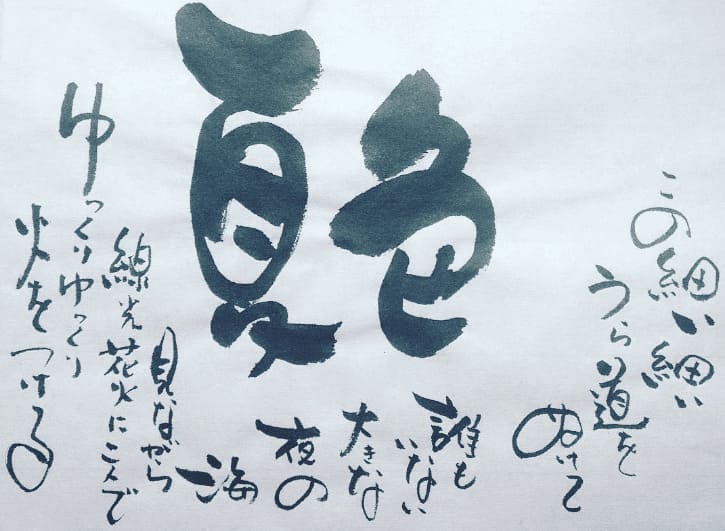 夏色
この細い細い
うら道を
ぬけて
誰も
いない
大きな
夜の
海
見ながら
線光花火に二人で
ゆっくりゆっくり
火をつける